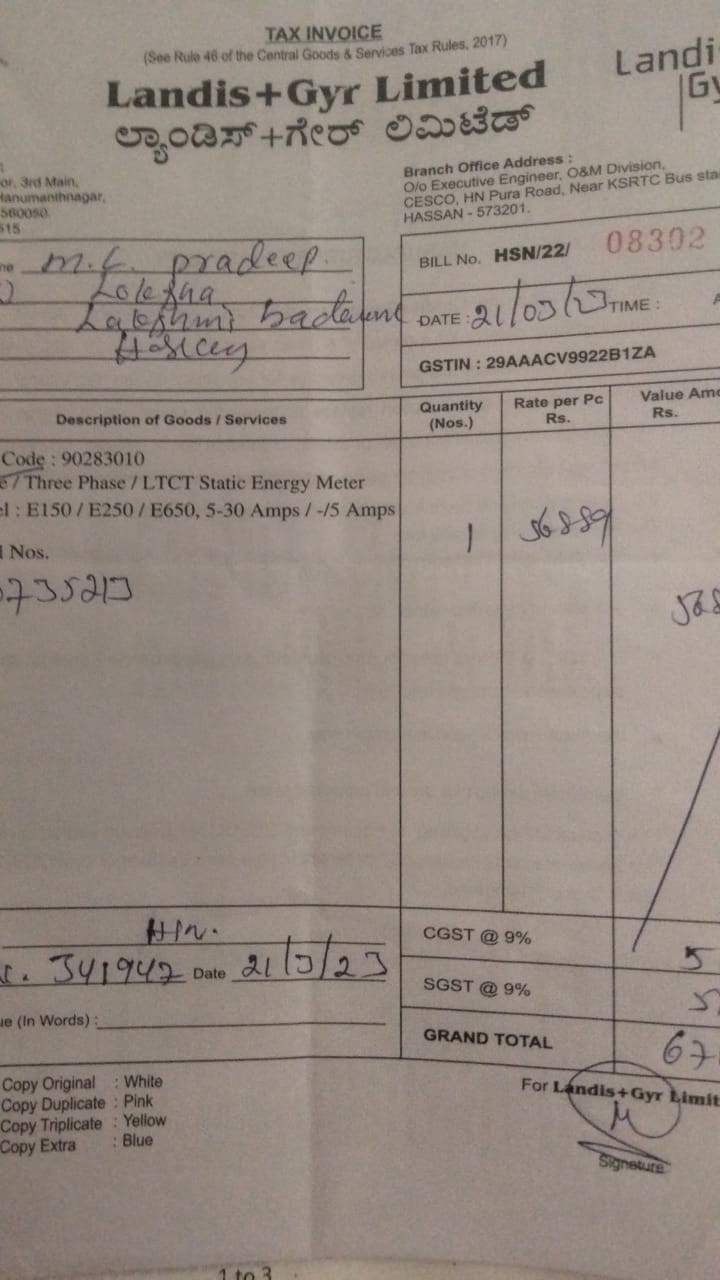 TAX INVOICE
(See Rule 46 of the Central Goods & Services Tax Rules, 2017)
Landis+Gyr Limited
ಲ್ಯಾಂಡಿಸ್+ಗೇರ್ ಲಿಮಿಟೆಡ್
Landi
Gy
or, 3rd Main,
Hanumanthnagar,
560050
515
Branch Office Address :
O/o Executive Engineer, O&M Division,
CESCO, HN Pura Road, Near KSRTC Bus sta
HASSAN - 573201.
me M.C. pradeep.
Lokesha
Lakshmi
BILL No. HSN/22/ 08302
DATE : 21/03/23 TIME : A
GSTIN : 29AAACV9922B1ZA
Description of Goods / Services
Quantity (Nos.)
Rate per Pc Rs.
Value Amo Rs.
Code : 90283010
e / Three Phase / LTCT Static Energy Meter
el : E150 / E250 / E650, 5-30 Amps / -/5 Amps
l Nos.
1
568
735213
HSN.
341947 Date 21/3/23
ue (In Words) :
CGST @ 9% 5
SGST @ 9% 5
GRAND TOTAL 67
Copy Original : White
Copy Duplicate : Pink
Copy Triplicate : Yellow
Copy Extra : Blue
For Landis+Gyr Limit
Signature
1 to 3